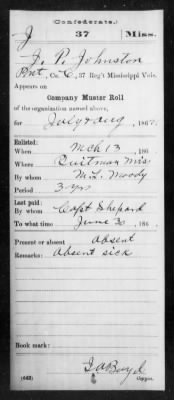 (Confederate.)
J 37 Miss.
J. P. Johnston
Pvt, Co. C, 37 Reg't Mississippi Vols.
Appears on
Company Muster Roll
of the organization named above,
for July & Aug, 186
Enlisted:
When Mch 13, 186
Where Quitman Mis
By whom M. L. Moody
Period 3 yrs
Last paid:
By whom Capt Shepard
To what time June 30, 186
Present or absent absent
Remarks: Absent sick
Book mark:
Boyd
(642) Copyist.